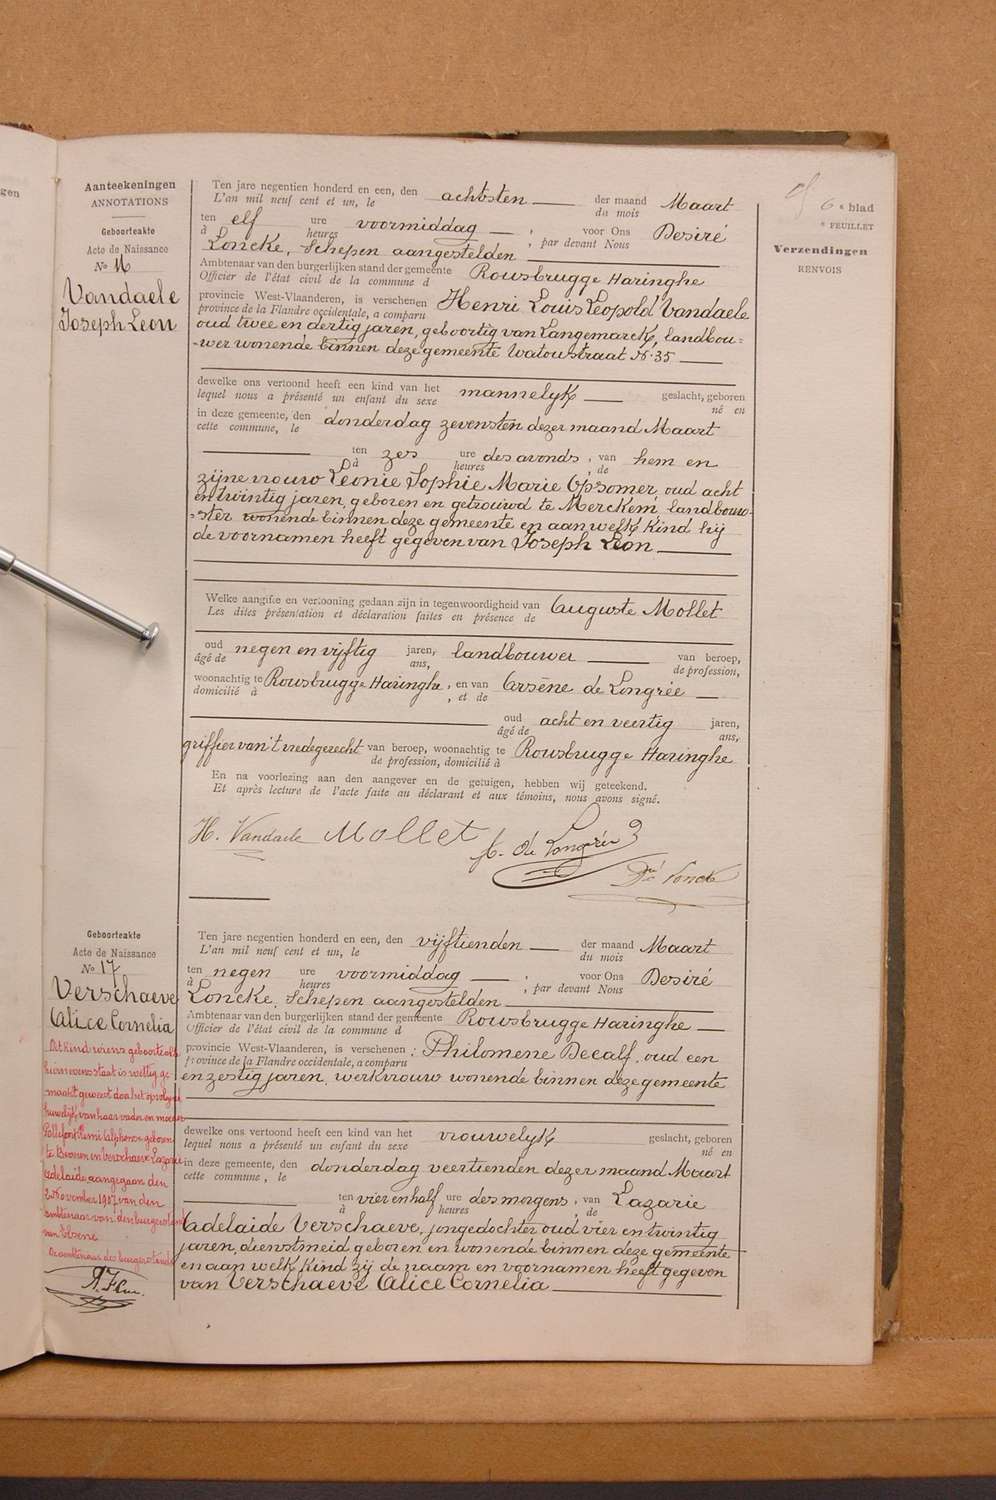 gen
Aanteekeningen
ANNOTATIONS
Geboorteakte
Acte de Naissance
No
Vandaele
Joseph Leon
6e blad
e FEUILLET
Verzendingen
RENVOIS
Ten jare negentien honderd en een, den achtsten der maand Maart
L'an mil neuf cent et un, le du mois
ten elf ure voormiddag, voor Ons Desiré
à heures , par devant Nous
Loncke, Schepen aangestelden
Ambtenaar van den burgerlijken stand der gemeente Rousbrugge Haringhe
Officier de l'état civil de la commune d
provincie West-Vlaanderen, is verschenen Henri Louis Leopold Vandaele
province de la Flandre occidentale, a comparu
oud twee en dertig jaren, geboortig van Langemarck, landbou=
=wer wonende binnen deze gemeente Watoustraat N. 35
dewelke ons vertoond heeft een kind van het mannelyk geslacht, geboren
lequel nous a présenté un enfant du sexe né en
in deze gemeente, den donderdag zevensten dezer maand Maart
cette commune, le
ten zes ure des avonds, van hem en
à heures , de
zijne vrouw Leonie Sophie Marie Opsomer, oud acht
en twintig jaren, geboren en getrouwd te Merckem, landbouw-
=ster wonende binnen deze gemeente en aan welk kind hij
de voornamen heeft gegeven van Joseph Leon
Welke aangifte en vertooning gedaan zijn in tegenwoordigheid van Auguste Mollet
Les dites présentation et déclaration faites en présence de
oud negen en vijftig jaren, landbouwer van beroep,
âgé de ans, de profession,
woonachtig te Rousbrugge Haringhe, en van Arsène de Longrée
domicilié à , et de
oud acht en veertig jaren,
âgé de ans,
griffier van 't vredegerecht van beroep, woonachtig te Rousbrugge Haringhe
de profession, domicilié à
En na voorlezing aan den aangever en de getuigen, hebben wij geteekend.
Et après lecture de l'acte faite au déclarant et aux témoins, nous avons signé.
H. Vandaele Mollet A. de Longrée
Dré Loncke
Geboorteakte
Acte de Naissance
No 17
Verschaeve
Alice Cornelia
Dit kind wiens geboorteakt
hiernevens staat is wettig ge
maakt geweest door het opvolgend
huwelijk van haer vader en moeder
Remi Alphonse geboren
te Beveren en Verschaeve Lazarie
Adelaide, aangegaan den
November 1907 van den
ambtenaar van den burgerstand
van
De ambtenaar des burgerstands
Ten jare negentien honderd en een, den vijftienden der maand Maart
L'an mil neuf cent et un, le du mois
ten negen ure voormiddag, voor Ons Desiré
à heures , par devant Nous
Loncke, Schepen aangestelden
Ambtenaar van den burgerlijken stand der gemeente Rousbrugge Haringhe
Officier de l'état civil de la commune d
provincie West-Vlaanderen, is verschenen: Philomene Decalf, oud een
province de la Flandre occidentale, a comparu
en zestig jaren, werkvrouw wonende binnen deze gemeente
dewelke ons vertoond heeft een kind van het vrouwelyk geslacht, geboren
lequel nous a présenté un enfant du sexe né en
in deze gemeente, den donderdag veertienden dezer maand Maart
cette commune, le
ten vier en half ure des morgens, van Lazarie
à heures , de
Adelaide Verschaeve, jongedochter oud vier en twintig
jaren, dienstmeid geboren en wonende binnen deze gemeente
en aan welk kind zij de naam en voornamen heeft gegeven
van Verschaeve Alice Cornelia